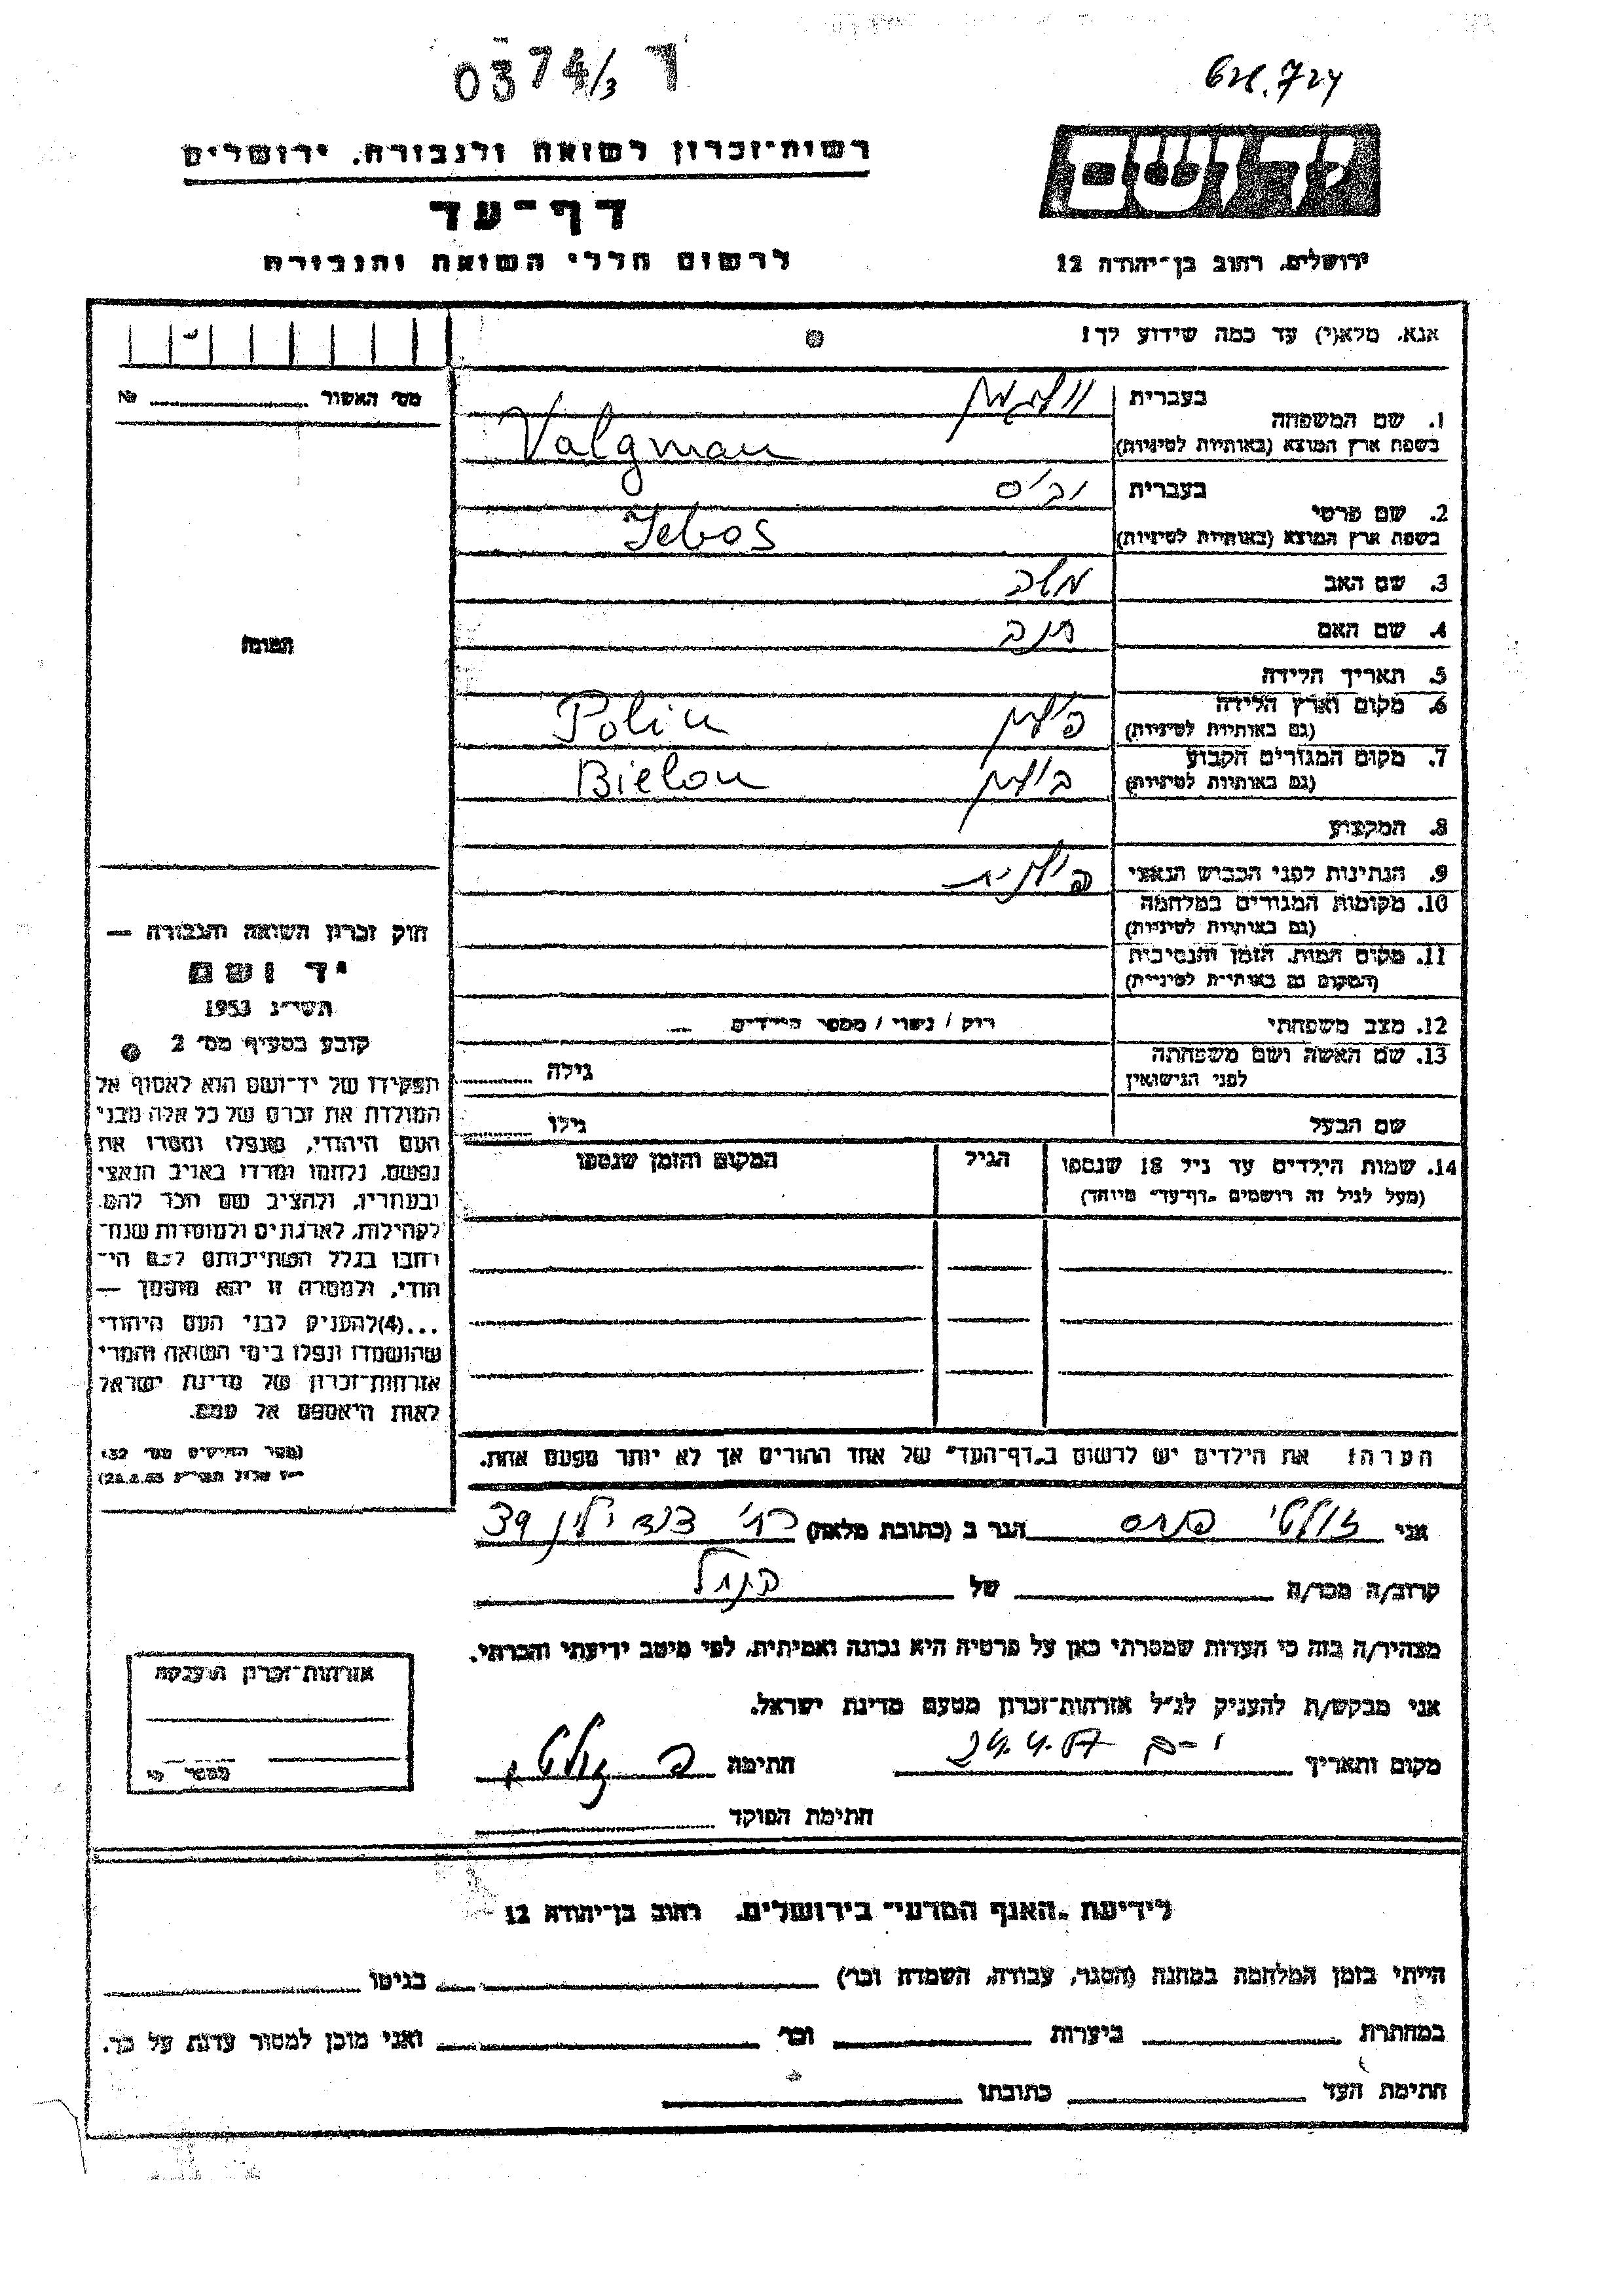 0374/3 ד
רשות-זכרון לשואה ולגבורה. ירושלים
דף-עד
לרשום חללי השואה והגבורה
יד ושם
ירושלים, רחוב בן-יהודה 12
אנא, מלא(י) עד כמה שידוע לך!
מס' האשור № 
1. שם המשפחה
בעברית
Valgman
בשפת ארץ המוצא (באותיות לטיניות)
2. שם פרטי
בעברית
Jebos
בשפת ארץ המוצא (באותיות לטיניות)
3. שם האב
4. שם האם
5. תאריך הלידה
6. מקום וארץ הלידה
(גם באותיות לטיניות)
פולין Polin
7. מקום המגורים הקבוע
(גם באותיות לטיניות)
Bielon
8. המקצוע
9. הנתינות לפני הכבוש הנאצי פולנית
10. מקומות המגורים במלחמה
(גם באותיות לטיניות)
11. מקום המות, הזמן והנסיבות
(המקום גם באותיות לטיניות)
12. מצב משפחתי רוק / נשוי / מספר הילדים
13. שם האשה ושם משפחתה
לפני הנישואין גילה
שם הבעל גילו
14. שמות הילדים עד גיל 18 שנספו הגיל המקום והזמן שנספו
(מעל לגיל זה רושמים "דף-עד" מיוחד)
הערה! את הילדים יש לרשום ב"דף-העד" של אחד ההורים אך לא יותר מפעם אחת.
התמונה
חוק זכרון השואה והגבורה —
יד ושם
תשי"ג 1953
קובע בסעיף מס' 2
תפקידו של יד-ושם הוא לאסוף אל
המולדת את זכרם של כל אלה מבני
העם היהודי, שנפלו ומסרו את
נפשם, נלחמו ומרדו באויב הנאצי
ובעוזריו, ולהציב שם וזכר להם,
לקהילות, לארגונים ולמוסדות שנח-
רחבו בגלל השתייכותם לעם הי-
הודי, ולמטרה זו יהא מוסמך —
...(4) להעניק לבני העם היהודי
שהושמדו ונפלו בימי השואה והמרי
אזרחות-זכרון של מדינת ישראל
לאות היאספם אל עמם.
(ספר החוקים מס' 132,
י"ז אלול תשי"ג 28.8.53)
אני הגר ב (כתובת מלאה) רח' דוד ילין 39
קרוב/ה מכר/ה של
מצהיר/ה בזה כי העדות שמסרתי כאן על פרטיה היא נכונה ואמיתית, לפי מיטב ידיעתי והכרתי.
אני מבקש/ת להעניק לנ"ל אזרחות-זכרון מטעם מדינת ישראל.
מקום ותאריך י-ם 24.4.57 חתימה
חתימת הפוקד
אזרחות-זכרון הוענקה
מספר
לידיעת "האגף המדעי" בירושלים, רחוב בן-יהודה 12
הייתי בזמן המלחמה במחנה (הסגר, עבודה, השמדה וכו') בגיטו
במחתרת ביערות וכו' ואני מוכן למסור עדות על כך.
חתימת העד כתובתו